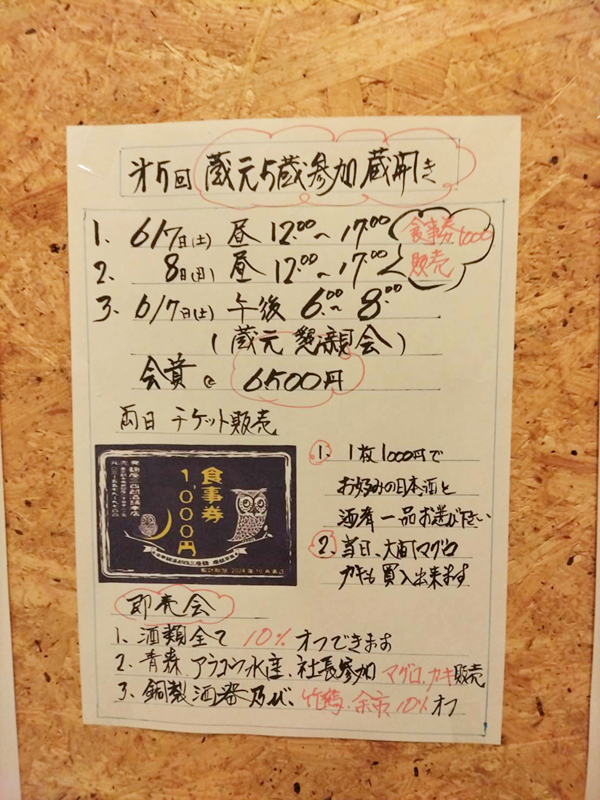 第5回 蔵元5蔵参加蔵開き
1、6/7日(土) 昼 12.00〜17.00
2、8日(日) 昼 12.00〜17.00
食事券1000
販売
3、6/7日(土) 午後 6.00〜8.00
(蔵元 懇親会)
会費 @ 6500円
両日 チケット販売
食事券
1,000円
1、1枚1000円で
お好みの日本酒と
酒肴一品お選び下さい
2、当日、大間マグロ
カキも買入出来ます
即売会
1、酒類全て 10% オフできます
2、青森 アラコウ水産、社長参加 マグロ、カキ販売
3、銅製 酒器及び、竹鶴、余市 10% オフ